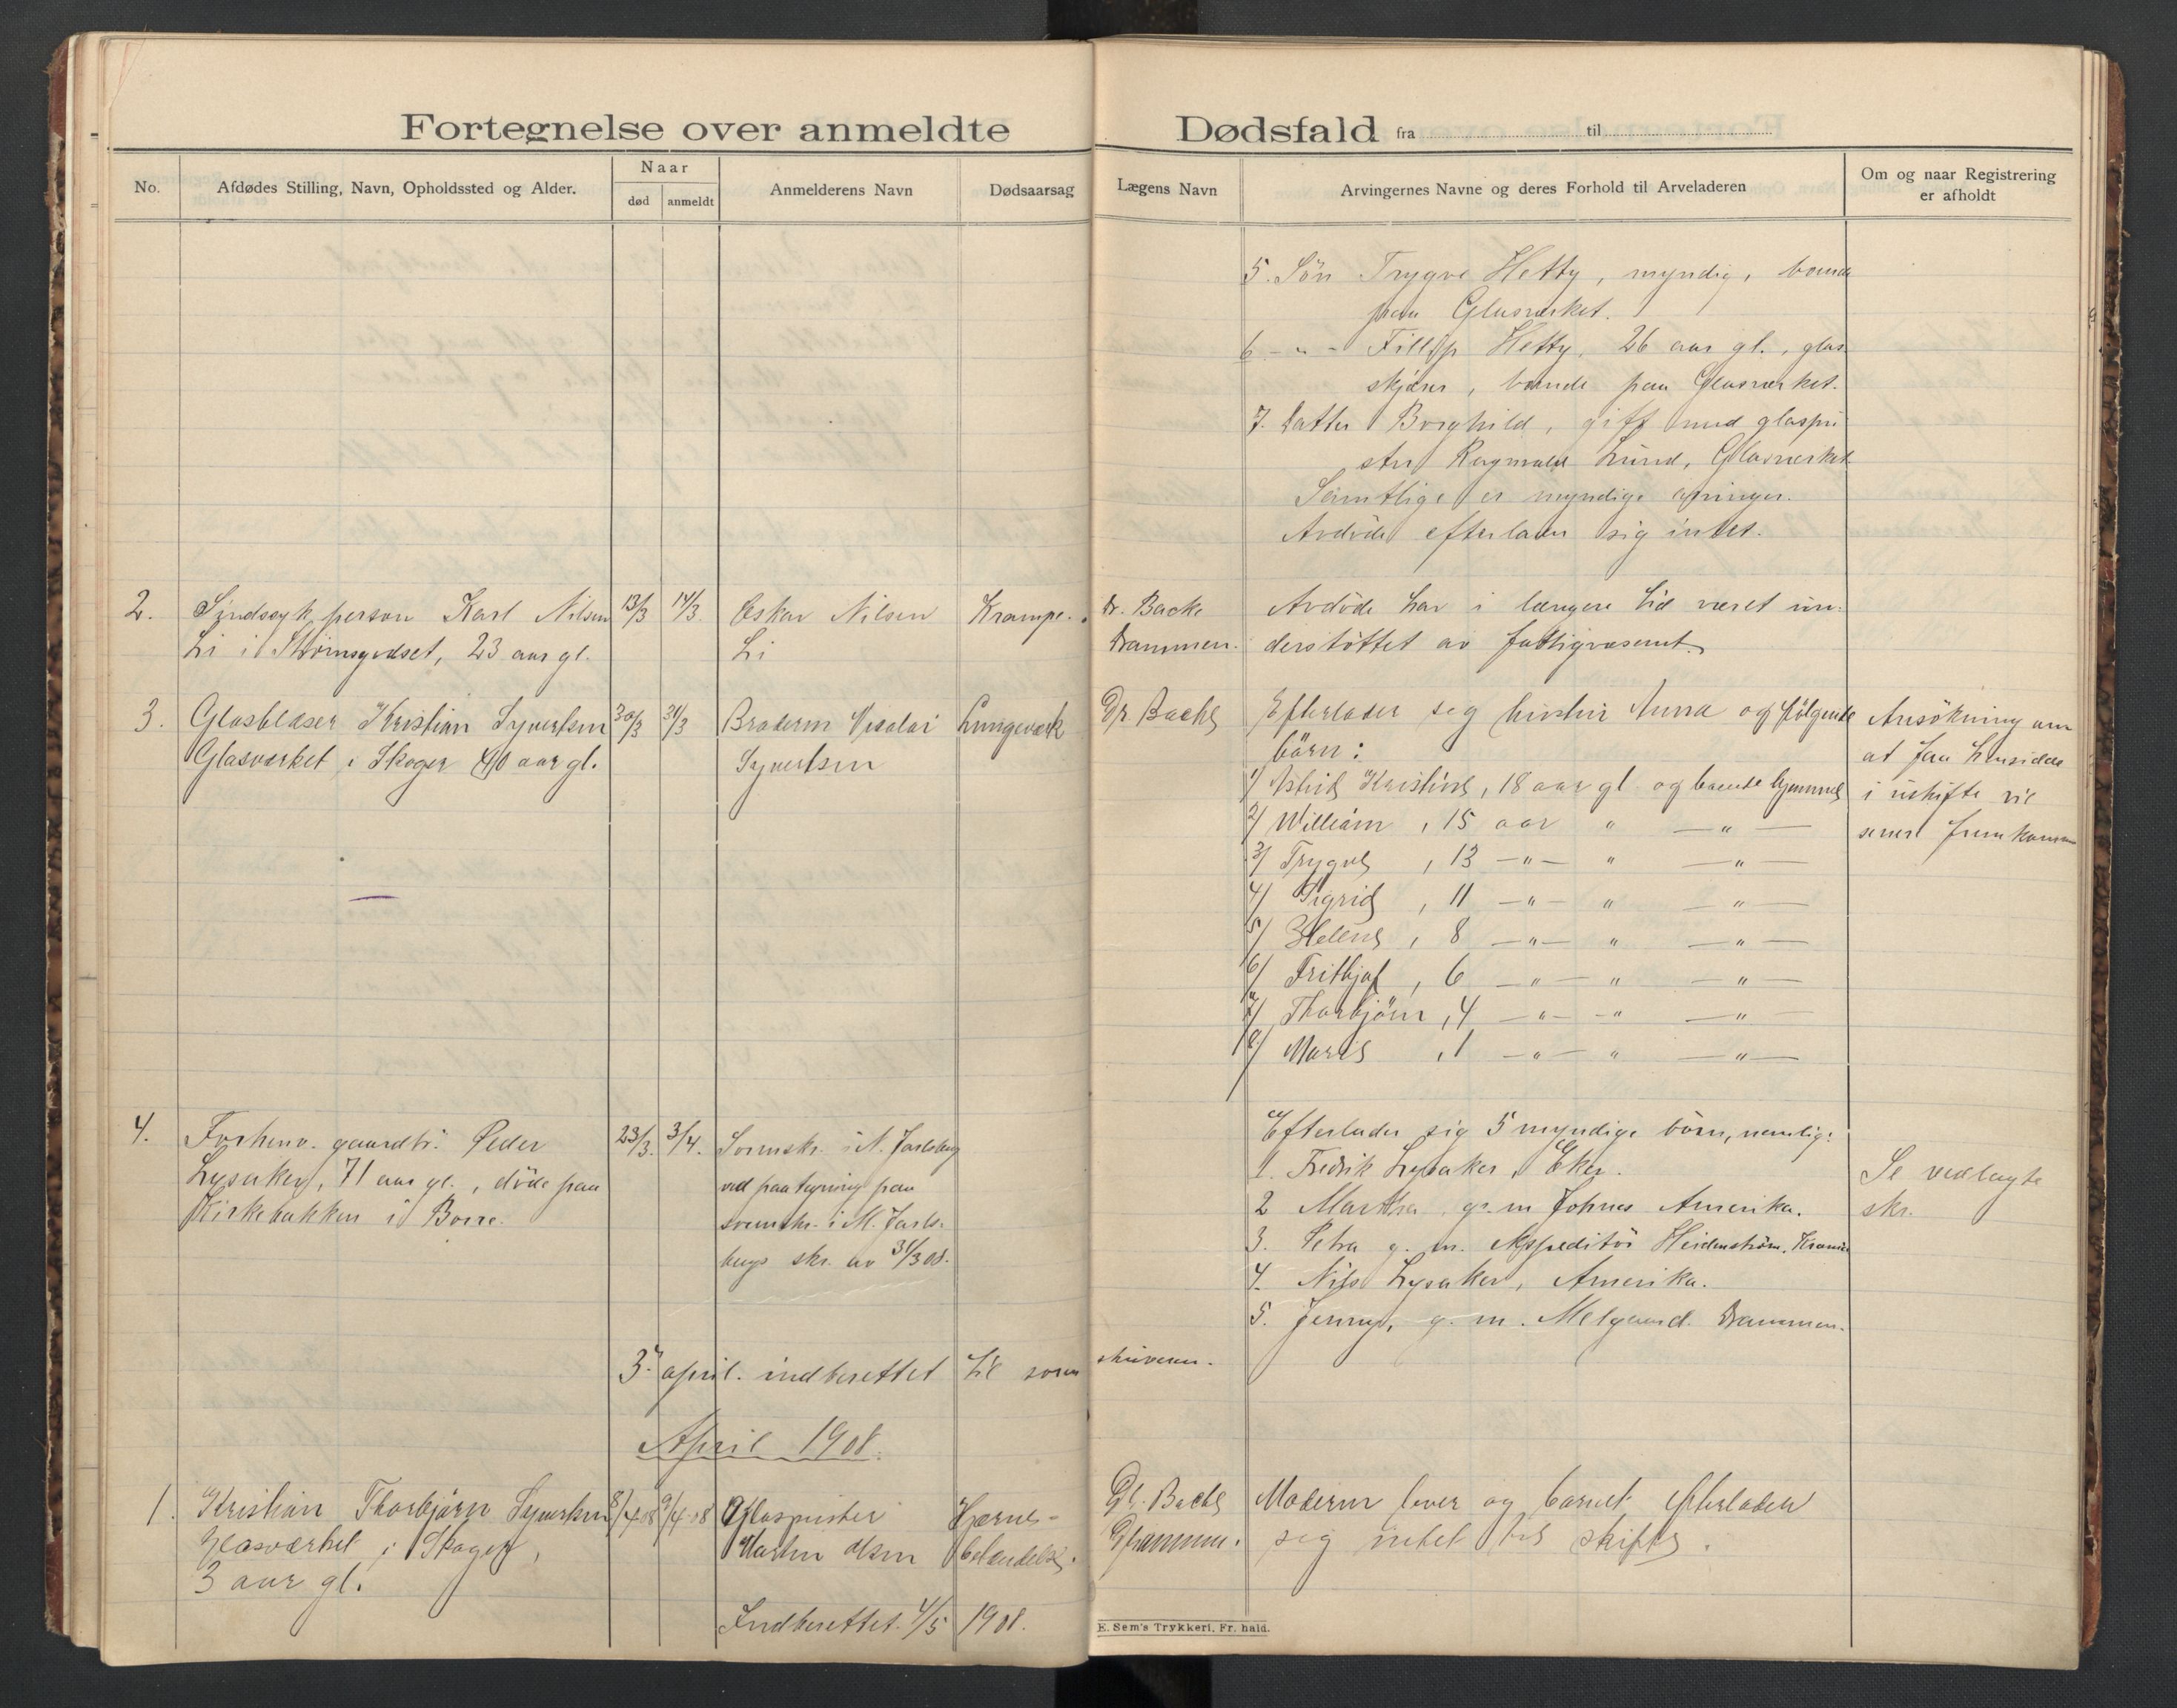 Fortegnelse over anmeldte Dødsfald fra til
No.
Afdødes Stilling, Navn, Opholdssted og Alder.
Naar
død
anmeldt
Anmelderens Navn
Dødsaarsag
Lægens Navn
Arvingernes Navne og deres Forhold til Arveladeren
Om og naar Registrering
er afholdt
5. Sön Trygve Hetty, myndig, boende
paa Glasværket.
6 - " - Fillip Hetty, 26 aar gl., glas
skjærer, boende paa Glasværket.
7. Datter Borghild, gift med glaspu
ster Ragnvald Lund, Glasværket.
Samtlige er myndige arvinger.
Avdöde efterlater sig intet.
2. Sindssyk person Karl Nilsen
Li i Strömsgodset, 23 aar gl.
13/3 14/3.
Oskar Nilsen
Li
Krampe.
Dr. Backe
Drammen.
Avdöde har i længere tid været un-
derstöttet av fattigvæsenet.
3. Glasblæser Kristian Syvertsen
Glasværket i Skoger 40 aar gl.
30/3 31/3
Broderen Nicolai
Syvertsen
Lungevæk
Dr Backe
Efterlader seg hustru Anna og fölgende
börn:
1/ Astrid Kristine, 18 aar gl og boende hjemme
2/ William , 15 aar " — " —
3/ Trygve , 13 — " — " — " —
4/ Sigrid , 11 — " — " — " —
5/ Helene , 8 — " — " — " —
6/ Fritjof , 6 — " — " — " —
7/ Thorbjörn , 4 — " — " — " —
8/ Marie , 1 — " — " — " —
Ansökning om
at faa hensidde
i uskifte vil
senere fremkomme
4. Forhenv. gaardbr. Peder
Lysaker, 71 aar gl., döde paa
Kirkebakken i Borre.
23/3. 3/4.
Sorenskr. i N. Jarlsberg
ved paategning paa
sorenskr. i M. Jarls-
bergs skr. av 31/3 08.
Efterlader sig 5 myndige börn, nemlig:
1. Fredrik Lysaker, Eker.
2 Martha g. m Johnes Amerika.
3. Petra g. m. Expeditör Heidenström,
4. Nils Lysaker, Amerika.
5. Jenny, g. m. Melgaard. Drammen.
Se vedlagte
skr.
3. april. indberettet til soren skriveren.
April 1908.
1. Kristian Thorbjörn Syvertsen
Glasværket i Skoger,
3 aar gl.
8/4 08 9/4 08
Glaspuster
Martin Olsen
Hjerne-
betændelse.
Dr. Backe
Drammen.
Moderen lever og barnet efterlader
sig intet til skifte.
Indberettet. 4/5 1908.
E. Sem's Trykkeri, Fr. hald.